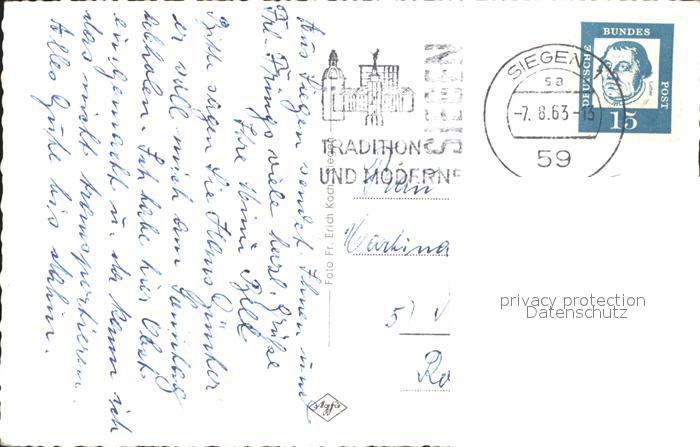 Aus Siegen sendet Ihnen und
Frl. Frings viele herzl. Grüße
Ihre Mimi
Bitte sagen Sie Hans Günther
er soll mich am Samstag
abholen. Ich habe hier Obst
eingemacht u. da kann ich
das nicht transportieren.
Alles Gute bis dahin.
Foto Fr. Erich Koch
Agfa
SIEGEN
TRADITION
UND MODERNE
SIEGEN 1
sa
-7. 8.63-13
59
DEUTSCHE
BUNDES
POST
Luther
15
Frau
Martina
5)
privacy protection
Datenschutz